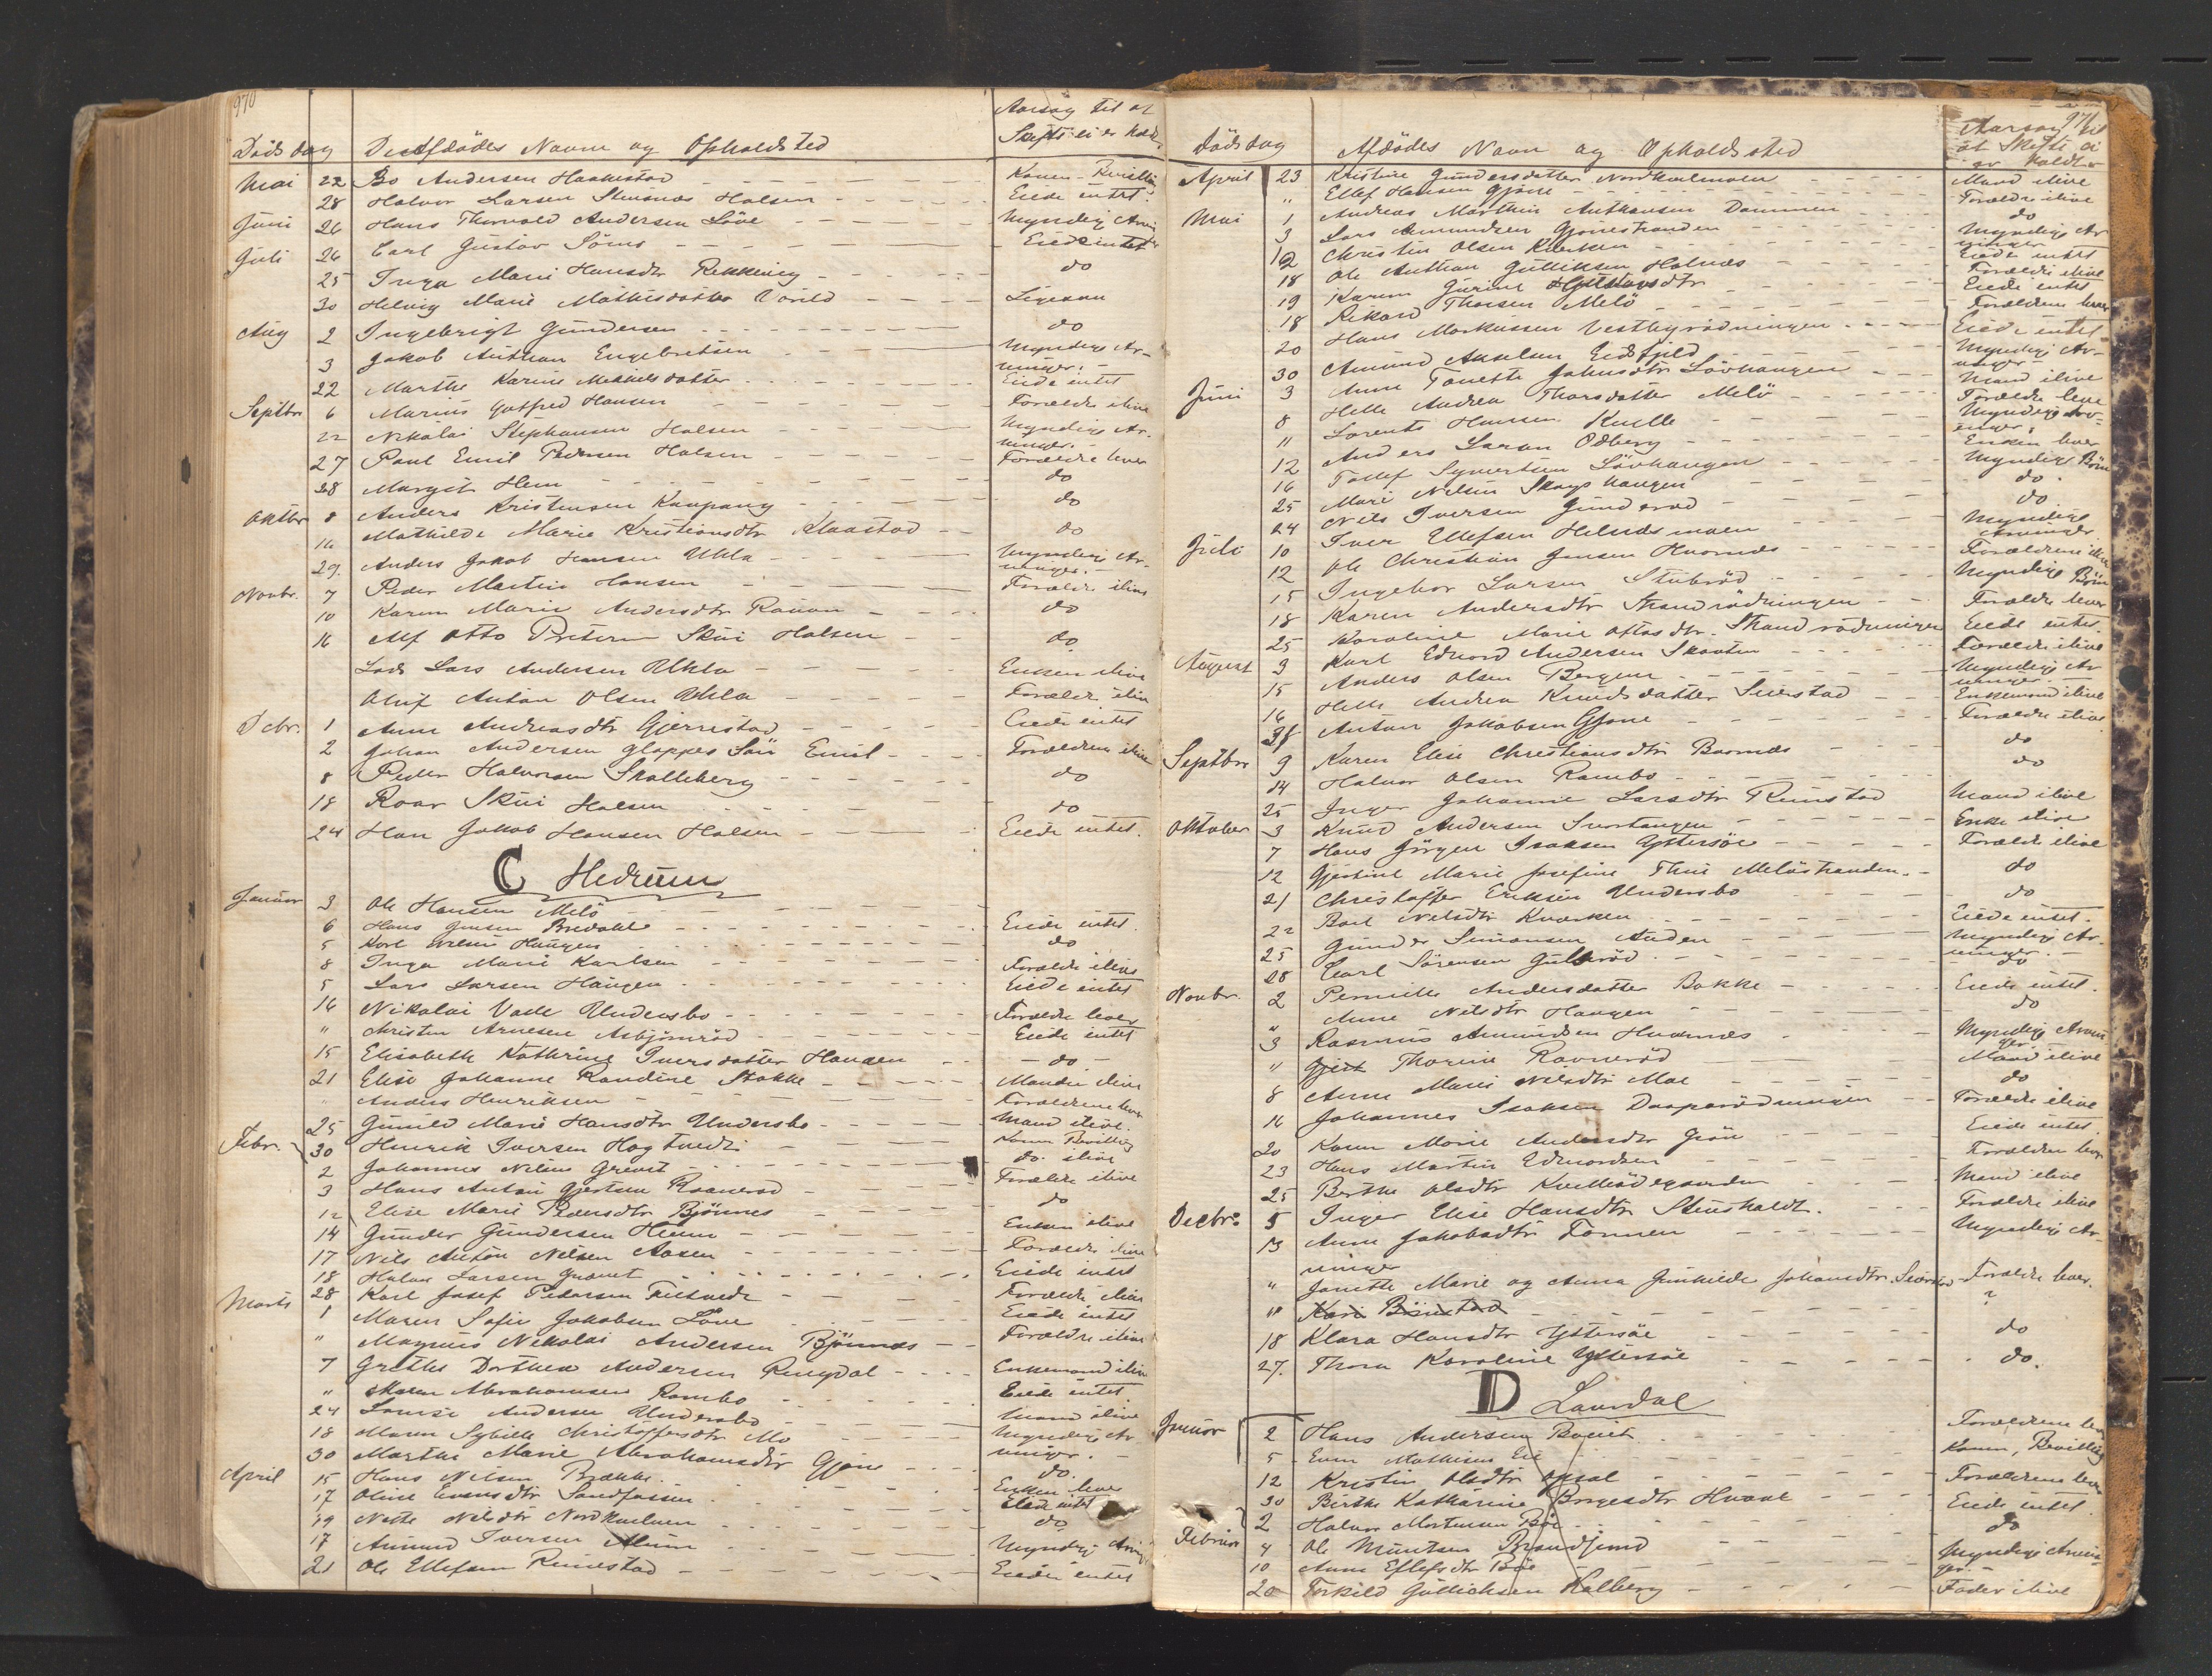 970
Dödsdag Den Afdödes Navn og Opholdsted Aarsag til at
Skifte ei er holdt
Mai 22 Bo Andersen Haakestad Konen - Bevilling
28 Halvor Larsen Steisnæs Halsen Eiede intet
Juni 26 Hans Thorvald Andersen Löve Myndige Arvinger
Juli 26 Carl Gustav Söms Eiede intet
25 Inga Marie Hansdtr Rekkevig do
30 Helvig Marie Mathisdatter Varild Ligesaa
Aug 2 Ingebrigt Gundersen do
3 Jakob Anthon Engebretsen Myndige Ar-
vinger.
22 Marthe Karine Mikkelsdatter Eiede intet
Septbr 6 Marius Gotfred Hansen Forældre ilive
22 Nikolai Stephansen Halsen Myndige Ar-
vinger.
27 Paul Emil Pedersen Halsen Forældre lever
28 Margit Hem do
Oktbr 8 Anders Kristensen Kaupang do
16 Mathilde Marie Kristiansdtr Klaastad do
29. Anders Jakob Hansen Ukla Myndige Ar-
vinger.
Novbr. 7 Peder Martin Hansen Forældre ilive
10 Karen Marie Andersdtr Rauan do
16 Alf Otto Petersen Skui Halsen do
Lods Lars Andersen Ukla Enken ilive
Oluf Anton Olsen Ukla Forældr ilive
Debr. 1 Anne Andreasdtr Gjerrestad Eiede intet
2 Johan Andersen Gloppes Sön Emil Forældrene ilive
8 Peder Halvorsen Skalleberg do
18 Roar Skui Halsen do
24 Han Jakob Hansen Halsen Eiede intet.
C Hedrum
Januar 3 Ole Hansen Melö
6 Hans Jensen Bredahl Eiede intet.
5 Karl Nilsen Haugen do
8 Inga Marie Karlsen Forældre ilive
5 Lars Larsen Haugen Eiede intet
16 Nikolai Valle Undersbo Forældre lever
" Christen Arnesen Asbjörnröd Eiede intet
15 Elisabeth Kathrine Iversdatter Haugen - do -
21 Elise Johanne Randine Stokke Manden ilive
" Anders Henriksen Forældrene lever
25 Gunild Marie Hansdtr Undersbo Mand ilive.
Febr. 30 Henrik Iversen Hogtvedt Konen Bevilling
2 Johannes Nilsen Grevet do. ilive
3 Hans Anton Gjertsen Ravnerød Forældre ilive
12 Elise Marie Pedersdtr Bjönnes do
14 Gunder Gundersen Heum Enken ilive
17 Nils Anton Nilsen Aasen Forældre ilive
18 Halvor Larsen Grevet Eiede intet
28 Karl Josef Pedersen Forældre ilive
Marts 1 Maren Sofie Jakobsen Löve Eiede intet
" Magnus Nikolai Andersen Bjönnæs Forældre ilive
7 Grethe Dorthea Andersen Ringdal Enkemand ilive
" Maren Abrahamsen Rambo Eiede intet
24 Lovise Andersen Undersbo Mand ilive
18 Maren Sybille Christoffersdtr Mo Myndige Ar-
vinger.
30 Marthe Marie Abrahamsdtr Gjone do.
April 15 Hans Nilsen Brække. Enken lever
17 Oline Evensdtr Sandfossen Eiede intet
19 Nette Nilsdtr Nordkvelven do
17 Amund Iversen Alum Myndige Arving
21 Ole Ellefsen Rimestad Eiede intet
971
Dödsdag Afdödes Navn og Opholdssted Aarsag til
at Skifte ei
er holdt
April 23 Kristine Gundersdatter Nordkvelmoen Mand ilive
" Ellef Hansen Gjöne Forældre ilive
Mai 1 Andreas Marthin Anthonsen Dammen do
3 Lars Amundsen Gjönestranden Myndige Ar
vinger
12 Christen Olsen Kvesken Eiede intet
18 Ole Anthon Gulliksen Holnæs Forældre ilive
19 Karen Gurine Gustavsdtr Eiede intet
18 Rikard Thorsen Melö Forældrene lever
20 Hans Markussen Vestbyrödningen Eiede intet
30 Amund Anselsen Eidsfjeld Myndige Ar-
vinger
Juni 3 Anne Tonette Johnsdtr Lövhaugen Mand ilive
8 Helle Andrea Thorsdatter Melö Forældre lever
11 Lorents Hansen Kvelle Myndige Arv-
inger.
12 Anders Larsen Odberg Enken lever
16 Tollef Syvertsen Lövhaugen Myndige Börn
25 Mari Nilsen Skogshaugen do.
24 Nils Iversen Gunderød do
Juli 10 Iver Ellefsen Holnæsmoen Myndige
Arvinger
12 Ole Christian Jensen Hvarnes Forældrene ilive
15 Ingebor Larsen Stubröd Myndige Börn
18 Karen Andersdtr Strandrödningen Forældre lever
25 Karoline Marie Olausdtr. Strandrödningen Eiede intet.
August 9 Karl Edvard Andersen Skouten Forældre ilive
15 Anders Olsen Bergem Myndige Ar
vinger.
16 Helle Andrea Knudsdatter Seierstad Enkemand ilive
38 Anton Jakobsen Gjone Forældre ilive
Septbr 9 Karen Elise Christiansdtr Barnæs do
14 Halvor Olsen Rambo do
25 Inger Johanne Larsdtr Rimstad Mand ilive
Oktober 3 Knud Andersen Svartangen Enke ilive
7 Hans Jörgen Isaksen Yttersöe Forældr ilive
12 Gjertine Marie Josefine Thue Melöstranden. do
21 Christoffer Eriksen Undersbo do
22 Boel Nilsdtr Kvesken Eiede intet.
25 Gunder Simonsen Auden Myndige Ar-
vinger.
28 Carl Sörensen Gulliröd do
Novbr. 2 Pernille Andersdatter Bakke Eiede intet.
" Anne Nilsdtr Haugen do
3 Rasmus Amundsen Hvarnæs Myndige Arvin
ger.
" Gjert Thorine Ravneröd Mand ilive
8 Anne Marie Nilsdtr Moe do
16 Johannes Isaksen Daaparödningen Forældre ilive
20 Karen Marie Andersdtr Grön Eiede intet.
23 Hans Martin Edvardsen Forældrene lever
25 Berthe Olsdtr Mand ilive
Decbr. 5 Inger Elise Hansdtr Stensholdt. Forældre ilive
13 Anne Jakobsdtr Tonnen Myndige Ar-
vinger
" Janette Marie og Anna Gunhilde Johansdtr. Seierstad Forældre lever.
" Kari Börnstad ?
18 Klara Hansdtr Yttersöe do
27. Thora Karoline Yttersöe do.
D Laurdal
Januar 2 Hans Andersen Forældrene lever
5 Even Mathisen Eie Konen, Bevilling
12 Kristin Olsdtr Opsal Forældrene lever
30 Birthe Katharine Borgesdtr Hvaal Eiede intet.
Februar 2 Halvor Mortensen Böe do
4 Ole Brandsrud Myndige Arvin-
ger
10 Anne Ellefsdtr Böe
20 Torkild Gullichsen Kalberg Fader ilive